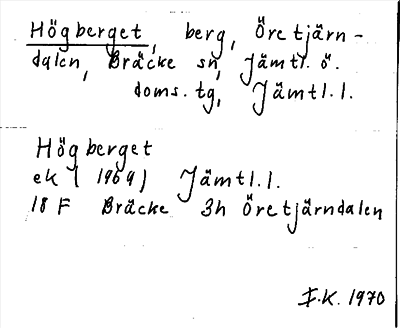 Högberget, berg, Öretjärn-
dalen, Bräcke sn, Jämtl. ö.
doms.tg, Jämtl.l.
Högberget
ek (1969) Jämtl.l.
18 F Bräcke 3h Öretjärndalen
I.K. 1970